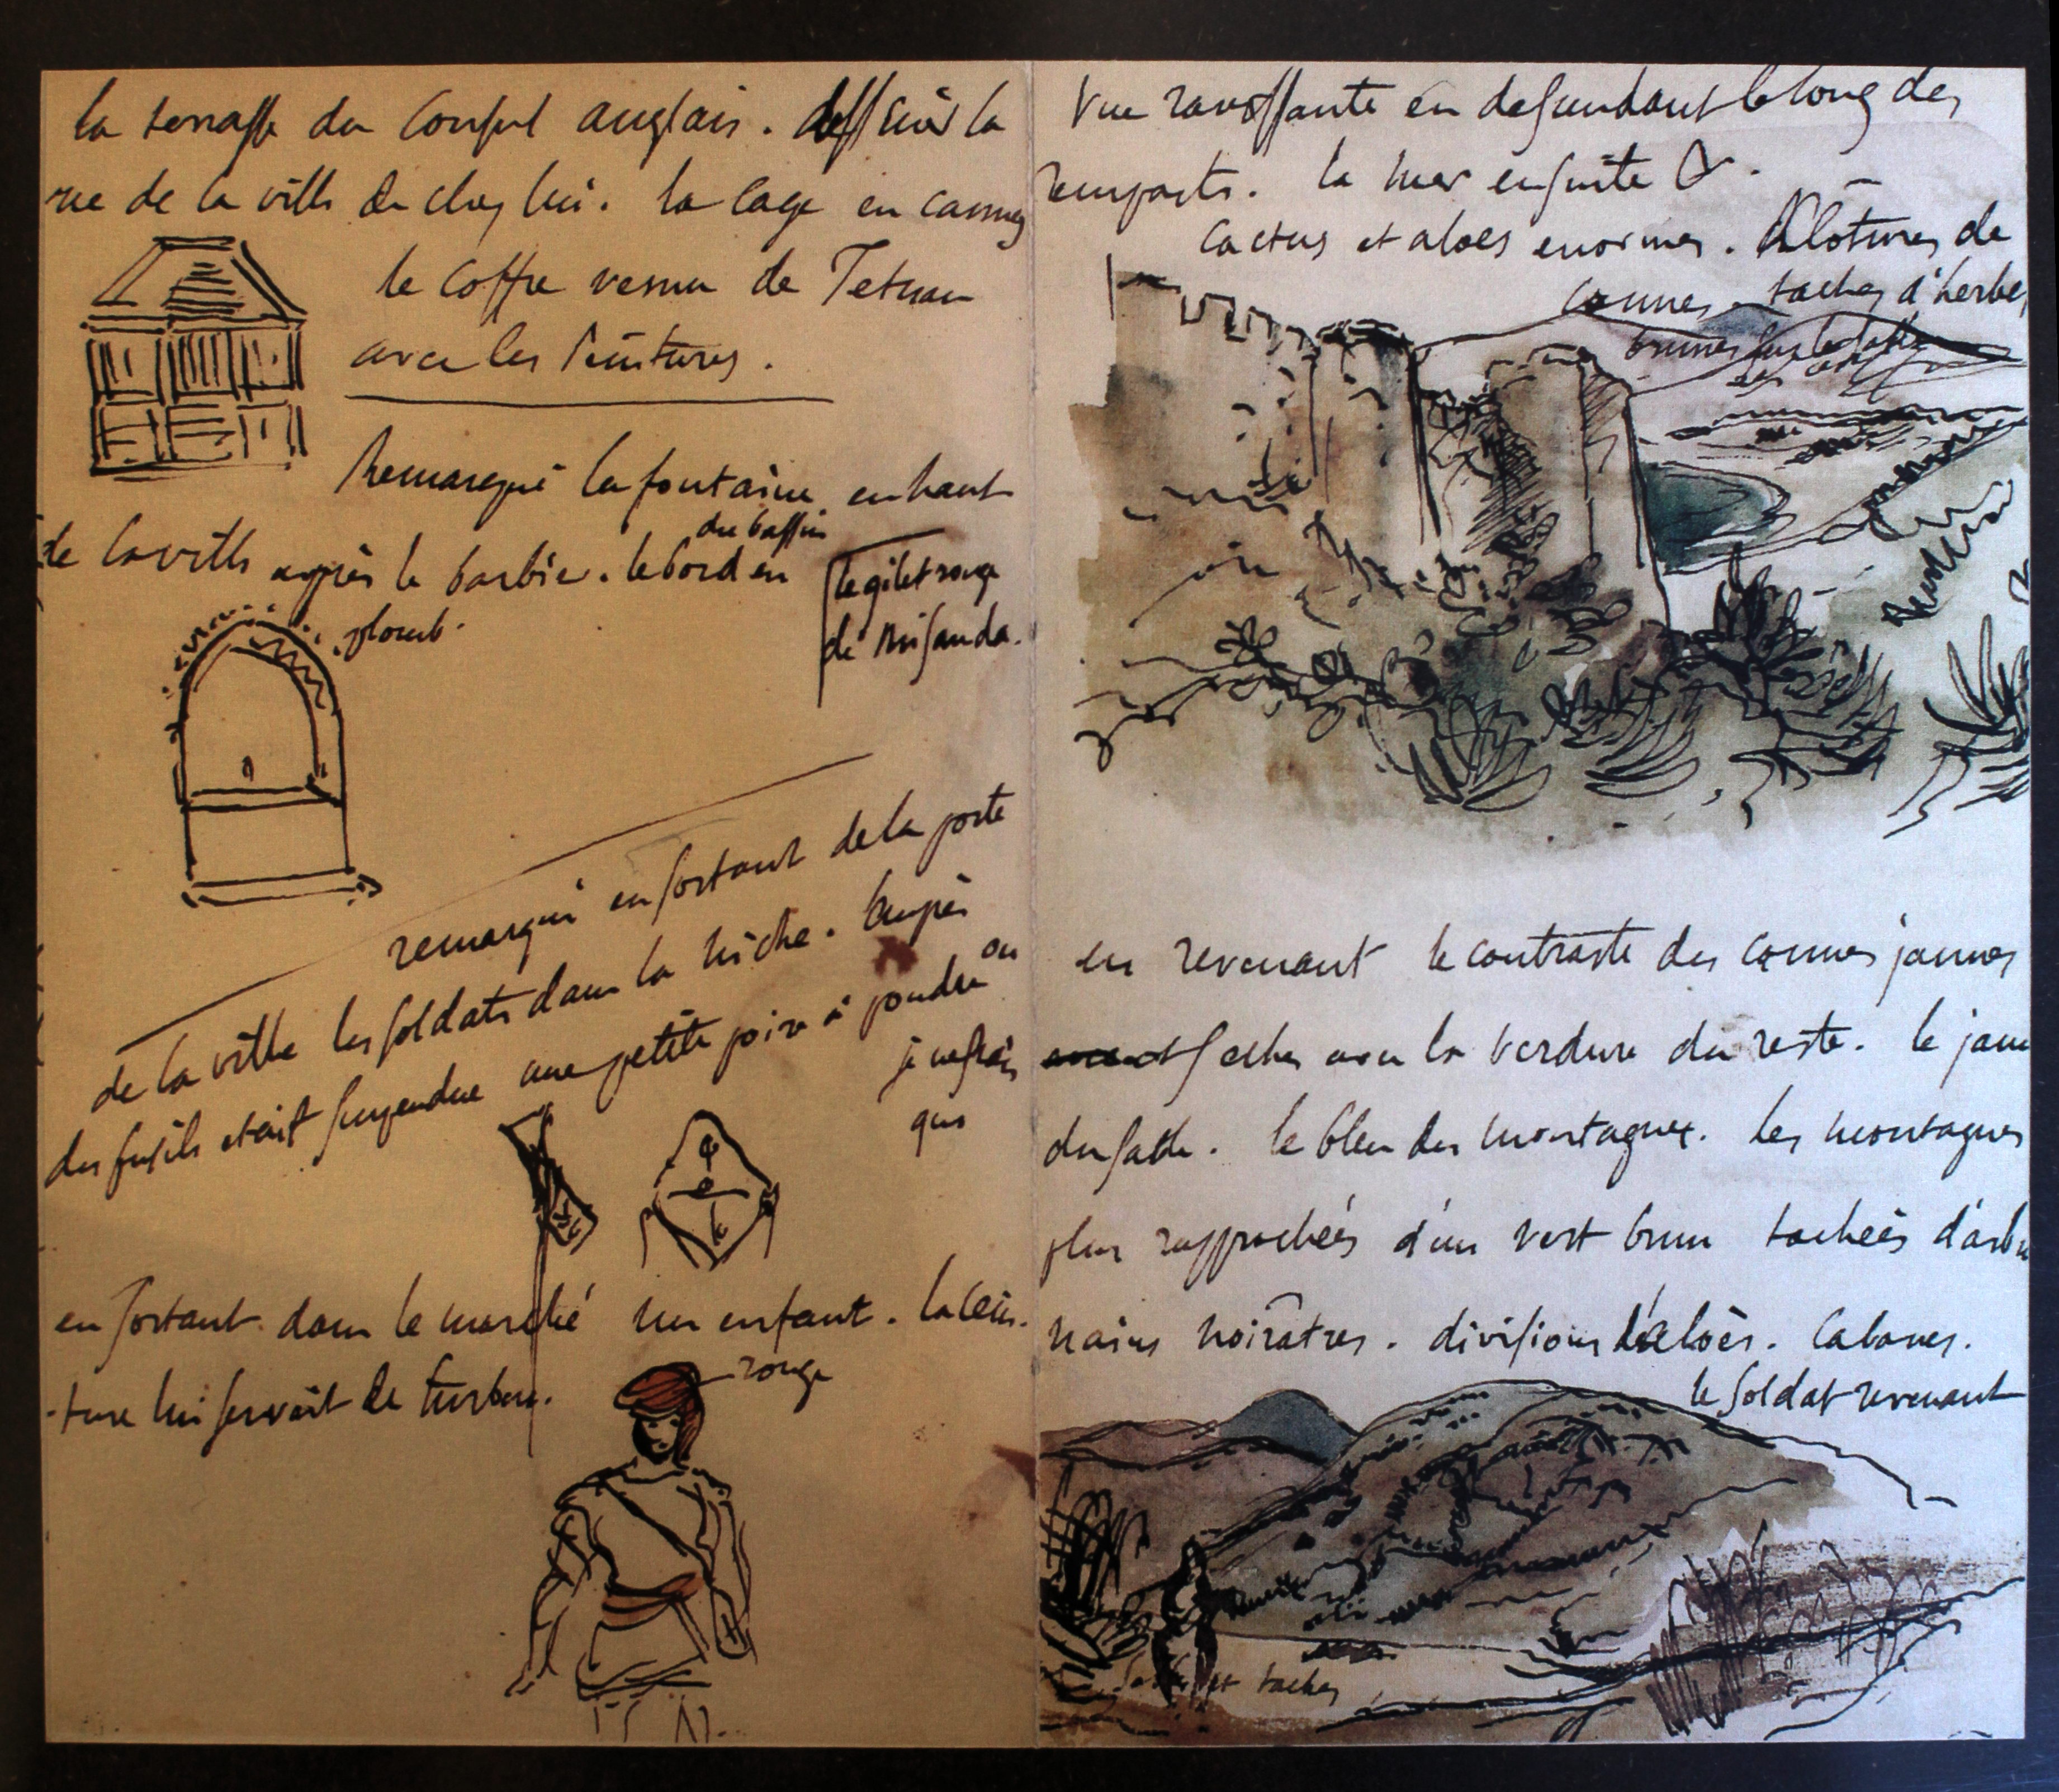 la terrasse du Consul anglais. dessiné la
vue de la ville de chez lui. la cage en cannes
le coffre venu de Tetuan
avec les Peintures.
Remarqué la fontaine en haut
de la ville après le barbier. le bord en
du bassin
plomb.
le gilet rouge
de
remarqué en sortant de la porte
de la ville les soldats dans la niche. Auprès
des fusils etait suspendue une petite poire à poudre ou
je ne sais
quoi
en sortant dans le marché un enfant. la cein-
-ture lui servait de turban.
rouge
Vue ravissante en descendant le long des
remparts. la mer ensuite &.
Cactus et aloes enormes. Clôtures de
cannes. taches d'herbes
brunes sur le sable
en revenant le contraste des cannes jaunes
et seches avec la verdure du reste. le jaune
du sable. le bleu des montagnes. Les montagnes
plus rapprochées d'un vert brun tachées d'arbus
nains noirâtres. divisions d'aloès. Cabanes.
le soldat revenant
et taches